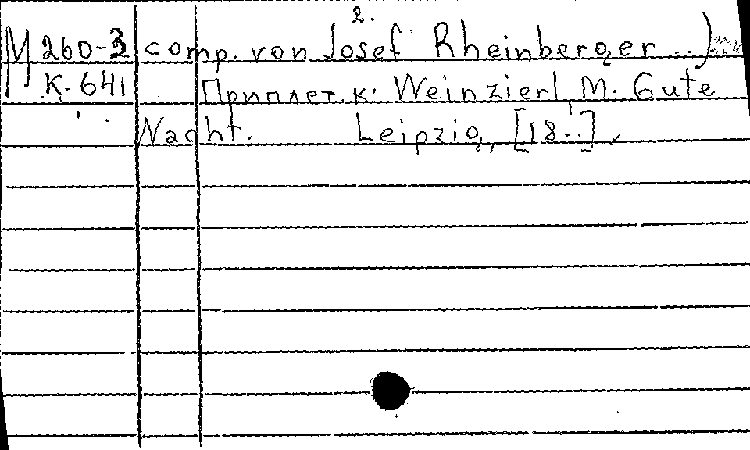 2.
М 260-3 comp. von Josef Rheinberger ...)
К-641 Приплет. к: Weinzierl, M. Gute
Nacht. Leipzig, [18..].